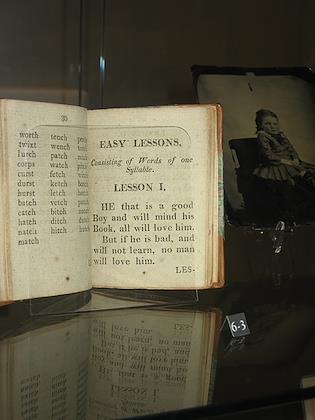 worth tench
twixt wench
lurch patch
corps watch
curst fetch
durst ketch
batch vetch
catch bitch
hatch ditch
hitch
match
EASY LESSONS,
Consisting of Words of one
Syllable.
LESSON I,
HE that is a good
Boy and will mind his
Book, all will love him.
But if he is bad, and
will not learn, no man
will love him.
LES-
6-3